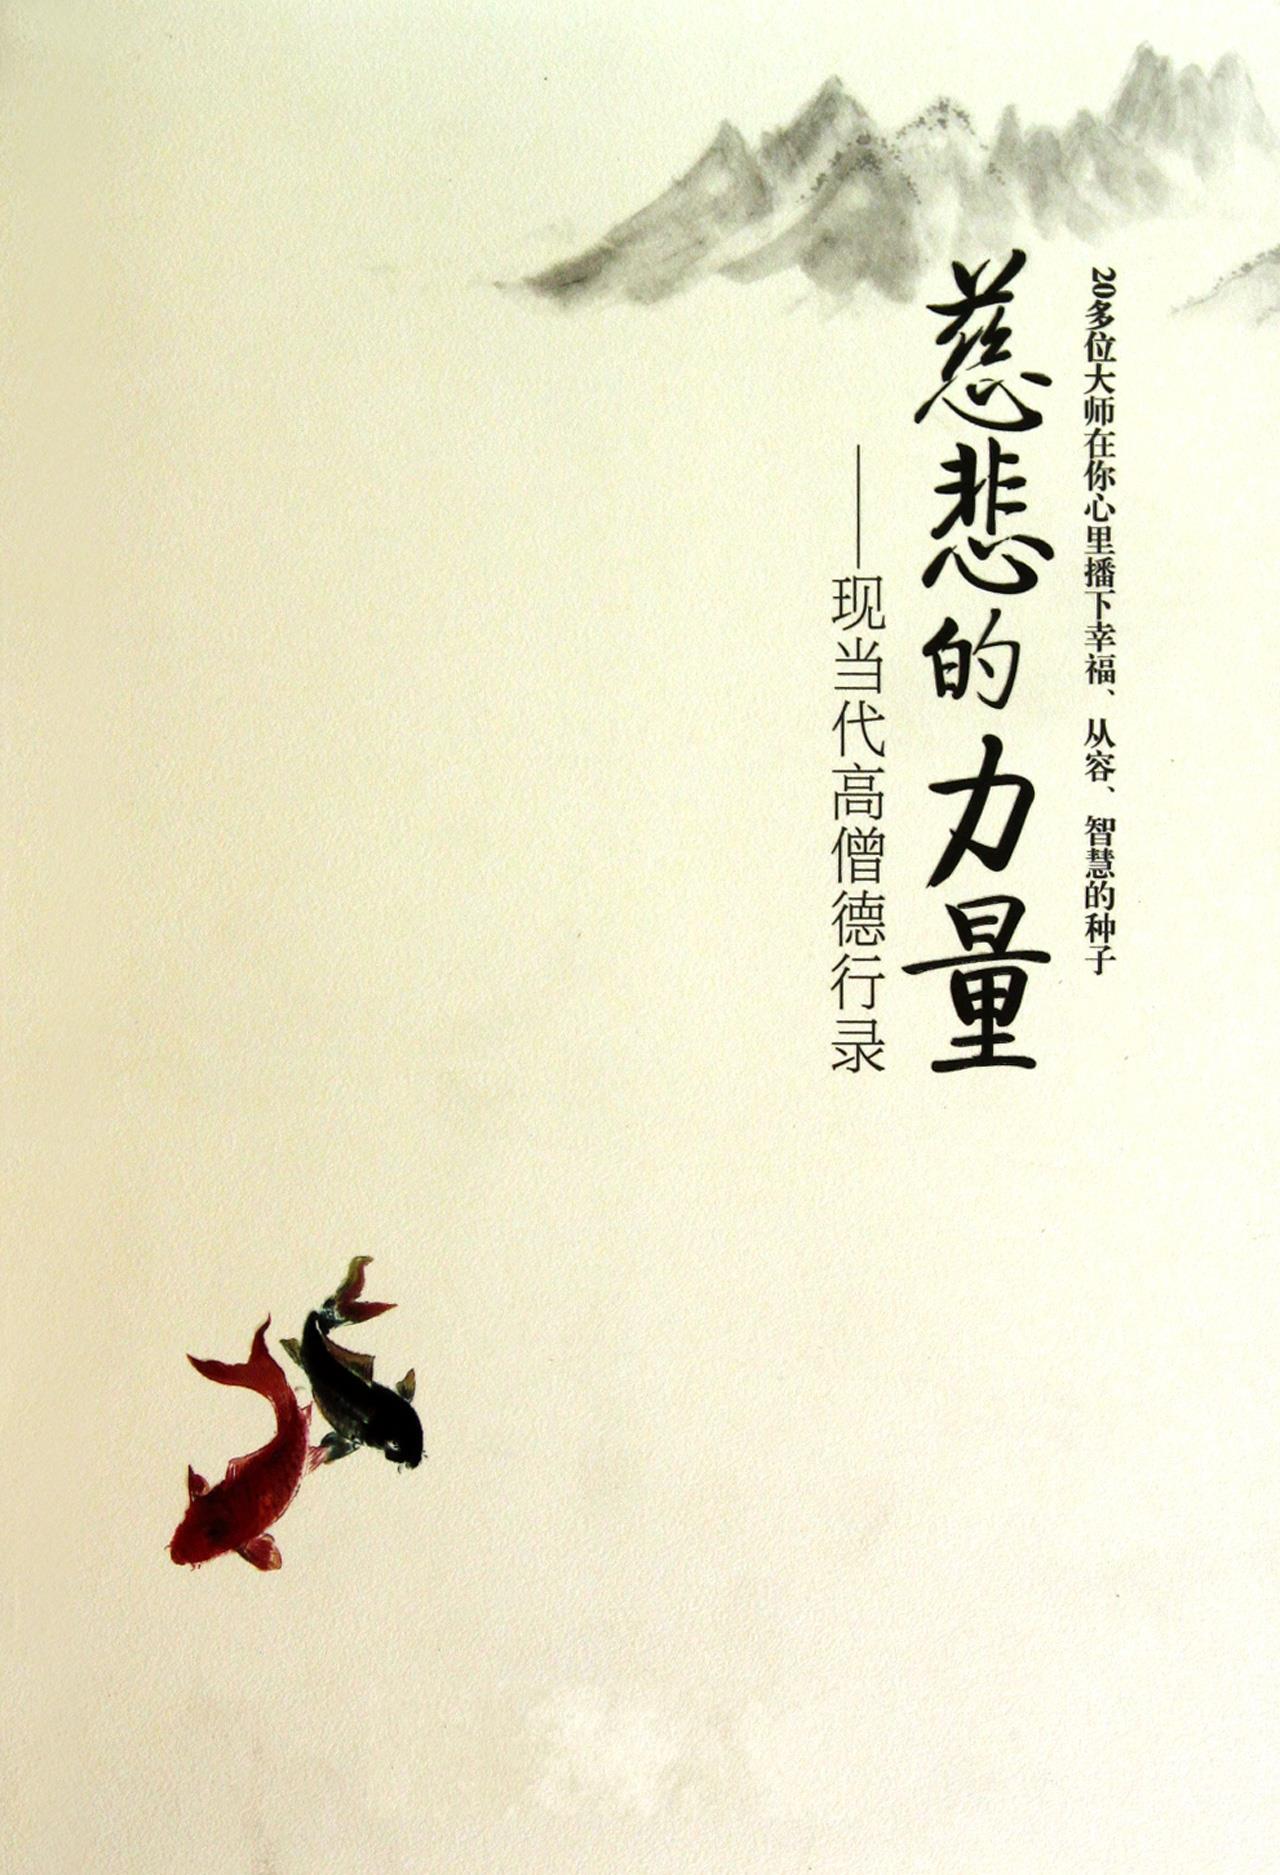 20多位大师在你心里播下幸福、从容、智慧的种子
慈悲的力量
——现当代高僧德行录